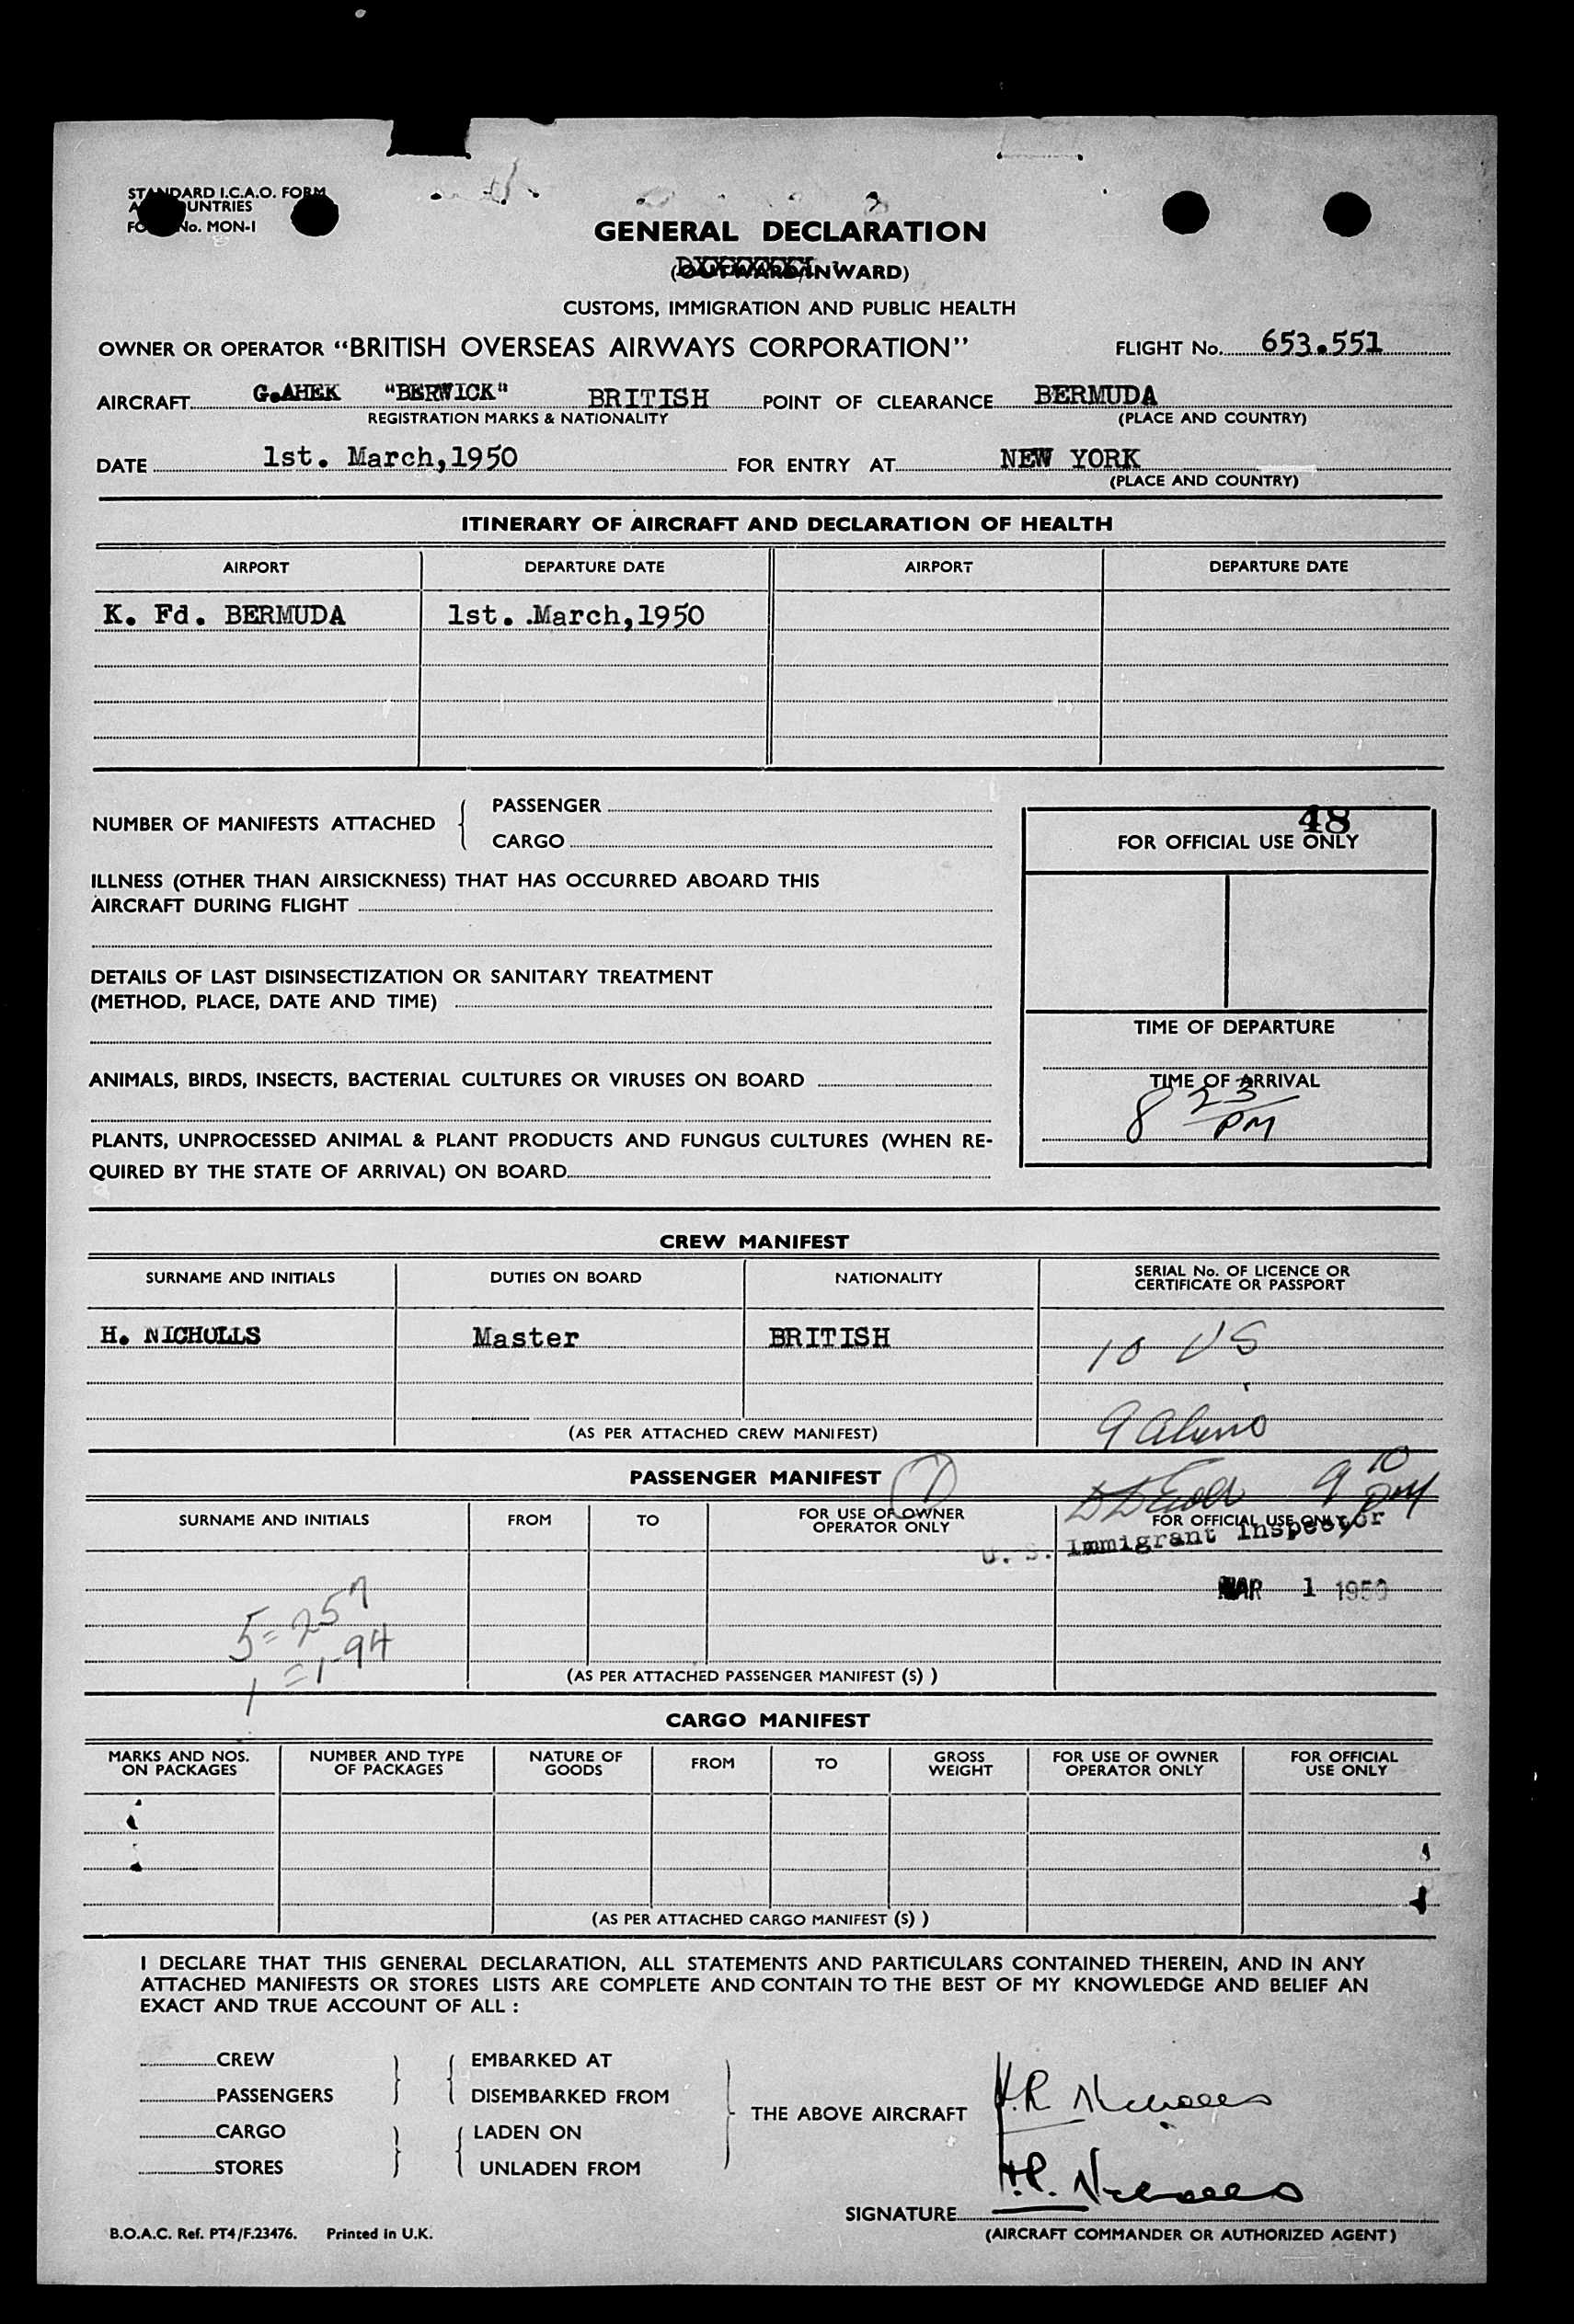 STANDARD I.C.A.O. FORM
UNTRIES
No. MON-1
GENERAL DECLARATION
(OUTWARD/INWARD)
CUSTOMS, IMMIGRATION AND PUBLIC HEALTH
OWNER OR OPERATOR "BRITISH OVERSEAS AIRWAYS CORPORATION" FLIGHT No. 653.551
AIRCRAFT G.AHEK "BERWICK" BRITISH POINT OF CLEARANCE BERMUDA
REGISTRATION MARKS & NATIONALITY (PLACE AND COUNTRY)
DATE 1st. March,1950 FOR ENTRY AT NEW YORK
(PLACE AND COUNTRY)
ITINERARY OF AIRCRAFT AND DECLARATION OF HEALTH
AIRPORT DEPARTURE DATE AIRPORT DEPARTURE DATE
K. Fd. BERMUDA 1st. .March,1950
NUMBER OF MANIFESTS ATTACHED { PASSENGER
CARGO
48
FOR OFFICIAL USE ONLY
ILLNESS (OTHER THAN AIRSICKNESS) THAT HAS OCCURRED ABOARD THIS
AIRCRAFT DURING FLIGHT
DETAILS OF LAST DISINSECTIZATION OR SANITARY TREATMENT
(METHOD, PLACE, DATE AND TIME)
TIME OF DEPARTURE
ANIMALS, BIRDS, INSECTS, BACTERIAL CULTURES OR VIRUSES ON BOARD
TIME OF ARRIVAL
8 23 PM
PLANTS, UNPROCESSED ANIMAL & PLANT PRODUCTS AND FUNGUS CULTURES (WHEN RE-
QUIRED BY THE STATE OF ARRIVAL) ON BOARD
CREW MANIFEST
SURNAME AND INITIALS DUTIES ON BOARD NATIONALITY SERIAL No. OF LICENCE OR
CERTIFICATE OR PASSPORT
H. NICHOLLS Master BRITISH 10 US
9 Aliens
(AS PER ATTACHED CREW MANIFEST)
PASSENGER MANIFEST
9 10 PM
SURNAME AND INITIALS FROM TO FOR USE OF OWNER
OPERATOR ONLY FOR OFFICIAL USE ONLY
U. S. Immigrant Inspector
MAR 1 1950
5 = 257
1 = 1-94
(AS PER ATTACHED PASSENGER MANIFEST (S) )
CARGO MANIFEST
MARKS AND NOS.
ON PACKAGES NUMBER AND TYPE
OF PACKAGES NATURE OF
GOODS FROM TO GROSS
WEIGHT FOR USE OF OWNER
OPERATOR ONLY FOR OFFICIAL
USE ONLY
(AS PER ATTACHED CARGO MANIFEST (S) )
I DECLARE THAT THIS GENERAL DECLARATION, ALL STATEMENTS AND PARTICULARS CONTAINED THEREIN, AND IN ANY
ATTACHED MANIFESTS OR STORES LISTS ARE COMPLETE AND CONTAIN TO THE BEST OF MY KNOWLEDGE AND BELIEF AN
EXACT AND TRUE ACCOUNT OF ALL :
CREW EMBARKED AT
PASSENGERS DISEMBARKED FROM
THE ABOVE AIRCRAFT H.R. Nicholls
CARGO LADEN ON
STORES UNLADEN FROM
H.R. Nicholls
SIGNATURE
B.O.A.C. Ref. PT4/F.23476. Printed in U.K. (AIRCRAFT COMMANDER OR AUTHORIZED AGENT)